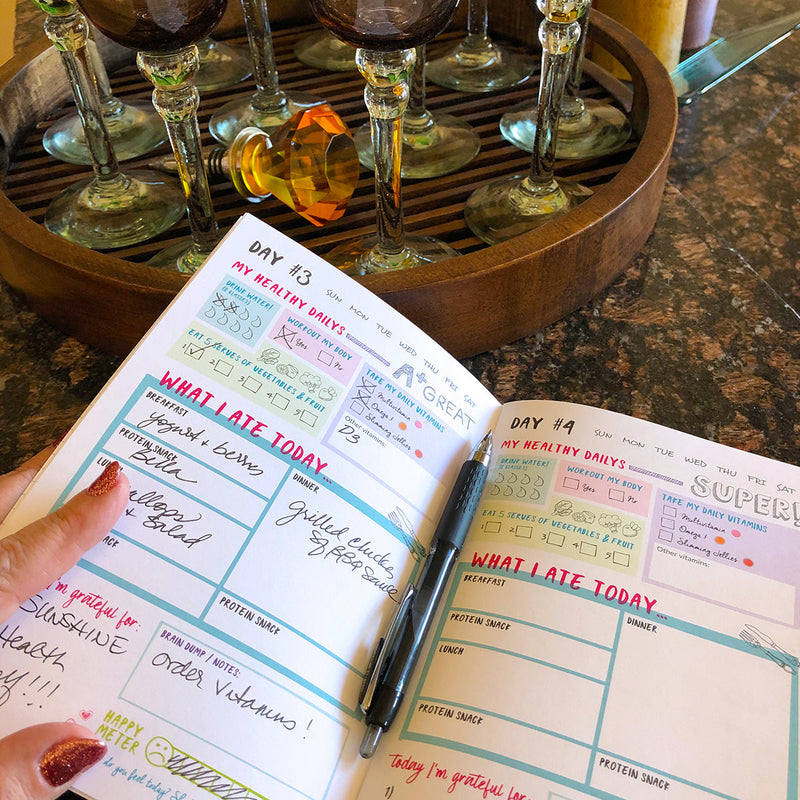 DAY #3
SUN MON TUE WED THU FRI SAT
MY HEALTHY DAILYS
DRINK WATER!
(8 GLASSES)
WORKOUT MY BODY
Yes No
A+
GREAT
EAT 5 SERVES OF VEGETABLES & FRUIT!
1 2 3 4 5
TAKE MY DAILY VITAMINS
Multivitamin
Omega 3
Slimming Jellies
Other vitamins:
D3
WHAT I ATE TODAY...
BREAKFAST
Yogurt + berry
PROTEIN SNACK
Bella
LUNCH
& Salad
DINNER
Grilled chicken
SF BBQ Sauce
PROTEIN SNACK
I'm grateful for:
SUNSHINE
Health
BRAIN DUMP / NOTES:
order vitamins!
HAPPY
METER
do you feel today?
DAY #4
SUN MON TUE WED THU FRI SAT
MY HEALTHY DAILYS
SUPER!
DRINK WATER!
(8 GLASSES)
WORKOUT MY BODY
Yes No
EAT 5 SERVES OF VEGETABLES & FRUIT!
1 2 3 4 5
TAKE MY DAILY VITAMINS
Multivitamin
Omega 3
Slimming Jellies
Other vitamins:
WHAT I ATE TODAY...
BREAKFAST
PROTEIN SNACK
LUNCH
PROTEIN SNACK
DINNER
PROTEIN SNACK
today I'm grateful for:
1)